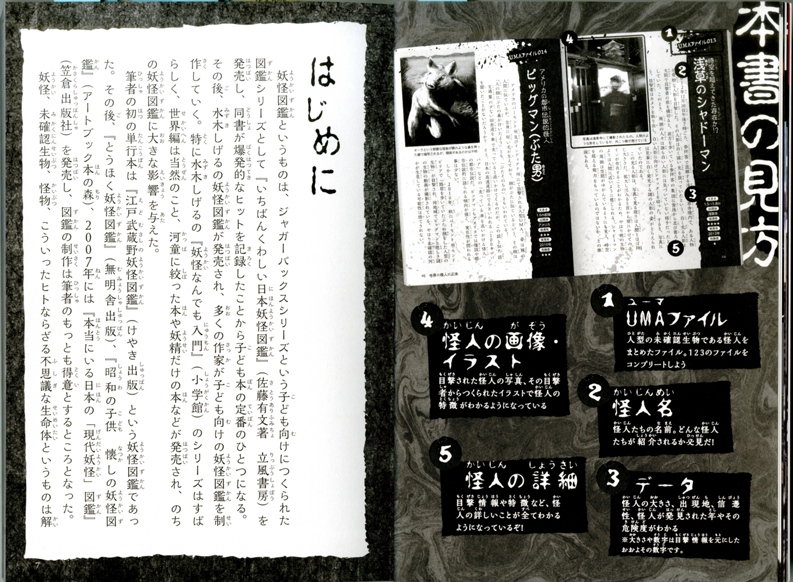 本書の見方
UMAファイル013
浅草のシャドーマン
UMAファイル014
アメリカの都市伝説怪人
ビッグマン(ぶた男)
1
2
3
4
5
1
ユーマ
UMAファイル
人型の未確認生物である怪人を
まとめたファイル。123のファイルを
コンプリートしよう
2
怪人名
怪人たちの名前。どんな怪人
たちが紹介されるか必見だ!
3
データ
怪人の大きさ、出現地、信憑
性、怪人が発見された年やその
危険度がわかる
※大きさや数字は目撃情報を元にした
おおよその数字です。
4
怪人の画像・
イラスト
目撃された怪人の写真、その目撃
者からつくられたイラストで怪人の
特徴がわかるようになっている
5
怪人の詳細
目撃情報や特徴など、怪
人の詳しいことが全てわかる
ようになっているぞ!
はじめに
妖怪図鑑というものは、ジャガーバックスシリーズという子ども向けにつくられた
図鑑シリーズとして『いちばんくわしい日本妖怪図鑑』(佐藤有文著 立風書房)を
発売し、同書が爆発的なヒットを記録したことから子ども本の定番のひとつになる。
その後、水木しげるの妖怪図鑑が発売され、多くの作家が子ども向けの妖怪図鑑を制
作していく。特に水木しげるの『妖怪なんでも入門』(小学館)のシリーズはすば
らしく、世界編は当然のこと、河童に絞った本や妖精だけの本などが発売され、のち
の妖怪図鑑に大きな影響を与えた。
筆者の初の単行本は『江戸武蔵野妖怪図鑑』(けやき出版)という妖怪図鑑であっ
た。その後、『とうほく妖怪図鑑』(無明舎出版)、『昭和の子供 懐しの妖怪図
鑑』(アートブック本の森)、2007年には『本当にいる日本の「現代妖怪」図鑑』
(笠倉出版社)を発売し、図鑑の制作は筆者のもっとも得意とするところとなった。
妖怪、未確認生物、怪物、こういったヒトならざる不思議な生命体というものは解
7